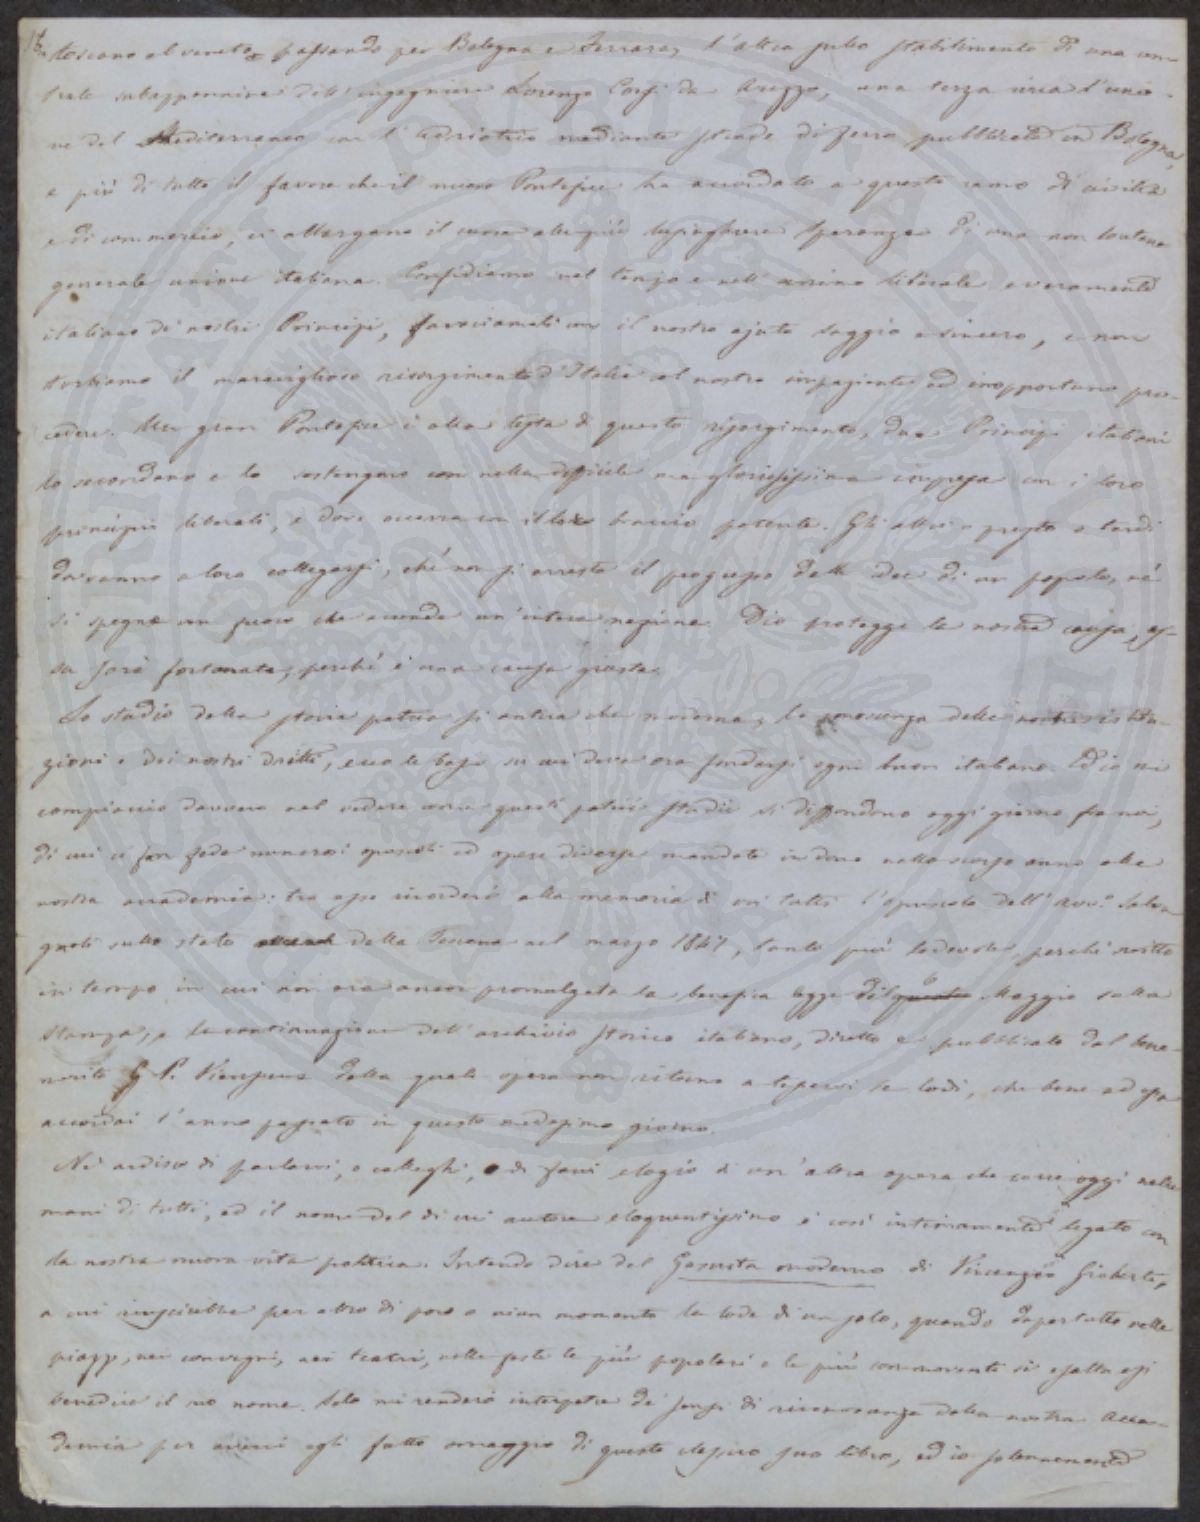 toscano al veneto passando per Bologna e Ferrara, l'altra sullo stabilimento di una cen-
trale subappennina dell'ingegniere Lorenzo Corsi da Arezzo, una terza circa l'unio-
ne del Mediterraneo con l'Adriatico mediante strade di ferro pubblicata in Bologna,
e più di tutto il favore che il nuovo Pontefice ha accordato a questo ramo di civiltà
e di commercio, ci allargano il cuore alle più lusinghiere speranze di una non lontana
generale unione italiana. Confidiamo nel tempo e nell'animo liberale e veramente
italiano de' nostri Principi, il nostro ajuto saggio e sincero, e non
turbiamo il maraviglioso risorgimento d'Italia col nostro impaziente ed inopportuno pro-
cedere. Un gran Pontefice è alla testa di questo risorgimento, due Principi italiani
lo secondano e lo sostengono nella difficile ma gloriosissima impresa con i loro
principii liberali, e dove occorra con il loro braccio potente. Gli altri o presto o tardi
dovranno a loro collegarsi, chè non si arresta il progresso delle idee di un popolo, nè
si spegne un fuoco che accende un'intera nazione. Dio protegge la nostra causa, es-
sa sarà fortunata, perchè è una causa giusta.
Lo studio della storia patria sì antica che moderna, la conoscenza delle nostre istitu-
zioni e dei nostri dritti, ecco le basi su cui deve ora fondarsi ogni buon italiano. Ed io mi
compiaccio davvero nel vedere come questi patrii studii si diffondono oggi giorno fra noi,
di cui ci fan fede numerosi opuscoli ed opere diverse mandate in dono nello scorso anno alla
nostra accademia: tra esse ricorderò alla memoria di voi tutti l'opuscolo dell'Avv.º Salva-
gnoli sullo stato della Toscana nel marzo 1847, tanto più lodevole, perchè scritto
in tempo in cui non era ancor promulgata la benefica legge del 6 Maggio sulla
stampa, e la continuazione dell'archivio storico italiano, diretto e pubblicato dal bene-
merito G. P. Vieusseux della quale opera non ritorno a tesservi le lodi, che bene ad essa
accordai l'anno passato in questo medesimo giorno.
Nè ardisco di parlarvi, o colleghi, o di farvi elogio di un'altra opera che corre oggi nelle
mani di tutti, ed il nome del di cui autore eloquentissimo è così intimamente legato con
la nostra nuova vita politica. Intendo dire del Gesuita moderno di Vincenzio Gioberti,
a cui riuscirebbe per altro di poco o niun momento la lode di un solo, quando dapertutto nelle
piazze, nei convegni, nei teatri, nelle feste le più popolari e le più commoventi si esalta e si
benedice il suo nome. Solo mi renderò interpetre de' sensi di riconoscenza della nostra Acca-
demia per averci egli fatto omaggio di questo classico suo libro, ed io solennemente